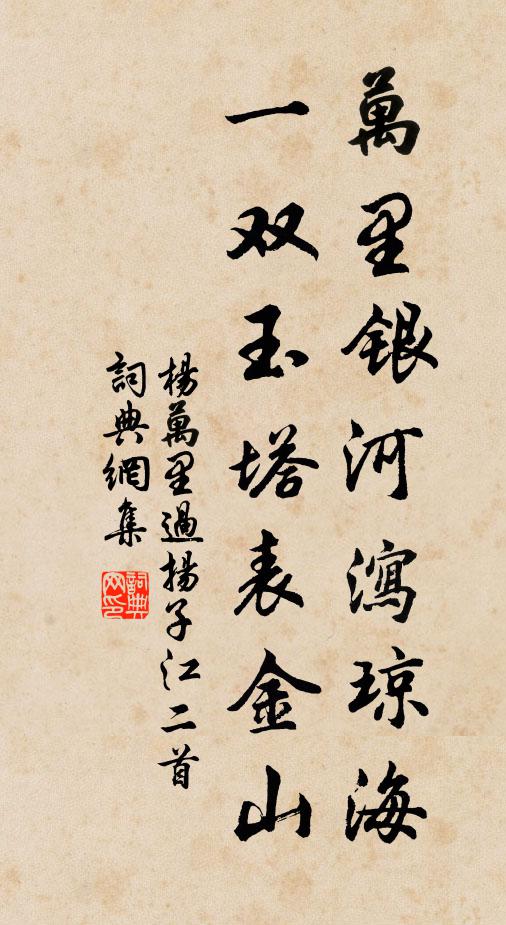 萬里銀河瀉琼海
一双玉塔表金山
楊萬里過揚子江二首
詞典網集
詞典网印